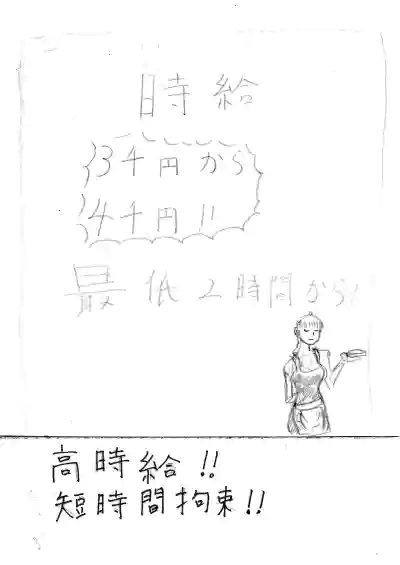 時給
3千円から
4千円!!
最低2時間から!
高時給!!
短時間拘束!!